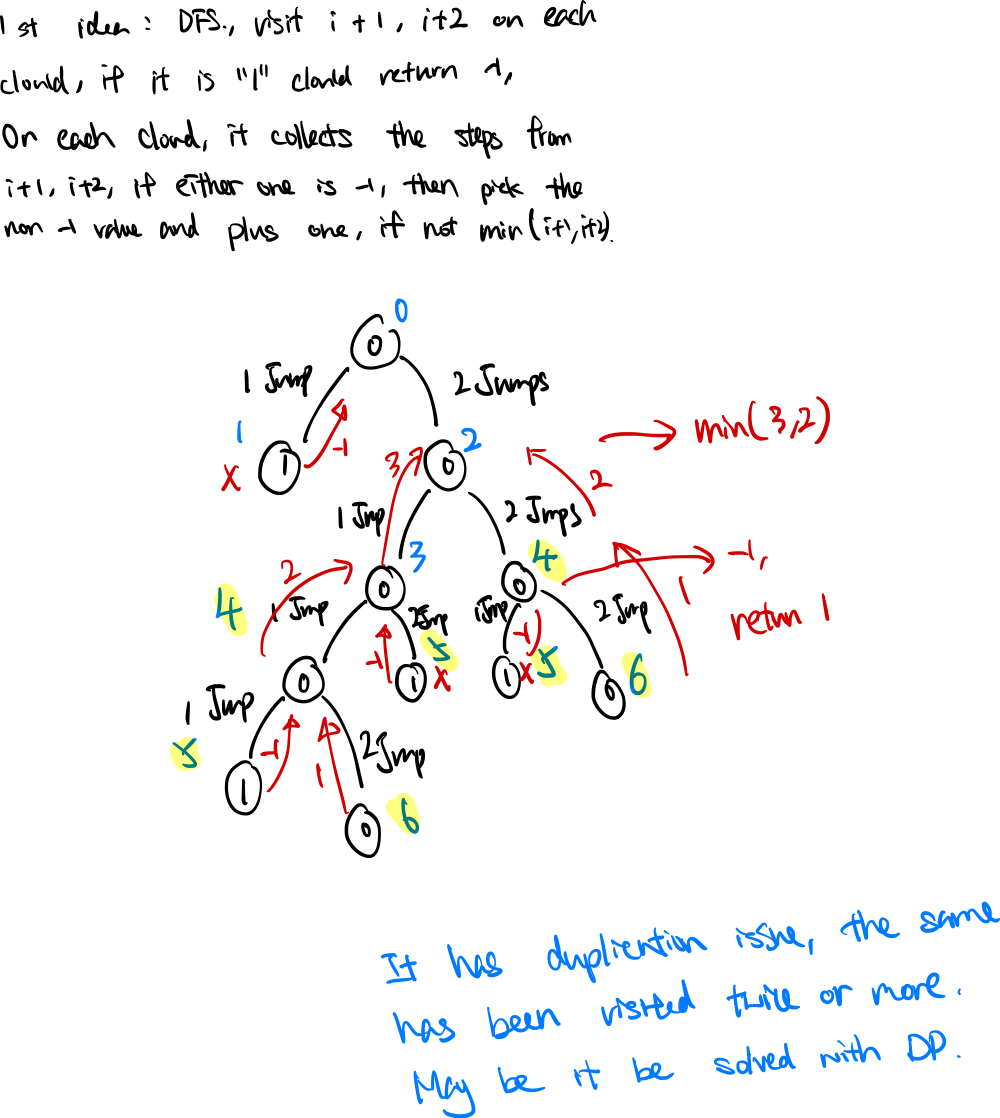 1st idea: DFS., visit i+1, i+2 on each
cloud, if it is "1" cloud return -1,
On each cloud, it collects the steps from
i+1, i+2, if either one is -1, then pick the
non -1 value and plus one, if not min(i+1, i+2).
0
0
1 Jump
2 Jumps
1
X
1
-1
2
0
3
2
→ min(3,2)
1 Jmp
2 Jmps
3
0
4
0
→ -1,
return 1
1
4
2
1 Jump
2Jmp
1Jmp
2 Jmp
0
-1
1
5
X
-1
1
X
5
0
6
1 Jump
5
-1
1
1
2Jmp
0
6
It has duplication issue, the same
has been visited twice or more.
May be it be solved with DP.